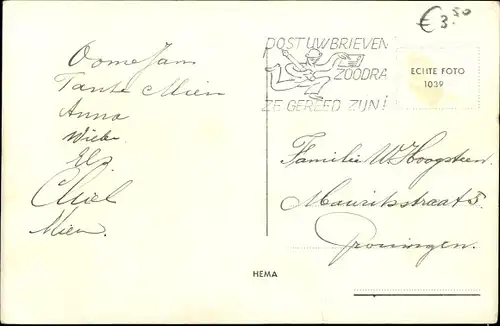 € 3.50
POST UW BRIEVEN
ZOODRA
ZE GEREED ZIJN!
ECHTE FOTO
1039
Oome Jan
Tante Mien
Anna
Wieber
Elz.
Chiel
Mien.
Familie W. Hoogsteen.
Mauritsstraat 5.
Groningen.
HEMA